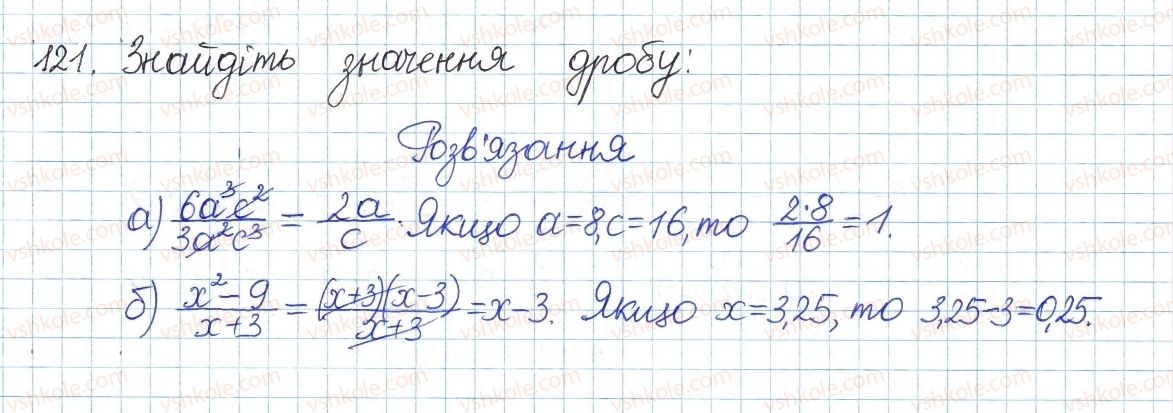 121. Знайдіть значення дробу:
Розв'язання
а) 6a³c²/3a²c³ = 2a/c. Якщо a=8, c=16, то 2·8/16 = 1.
б) x²-9/x+3 = (x+3)(x-3)/x+3 = x-3. Якщо x=3,25, то 3,25-3=0,25.